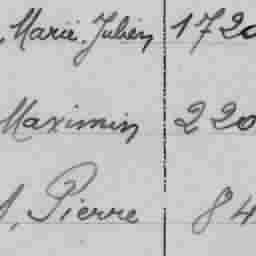 Marie. Julien 1720
Maximin 220
Pierre 84